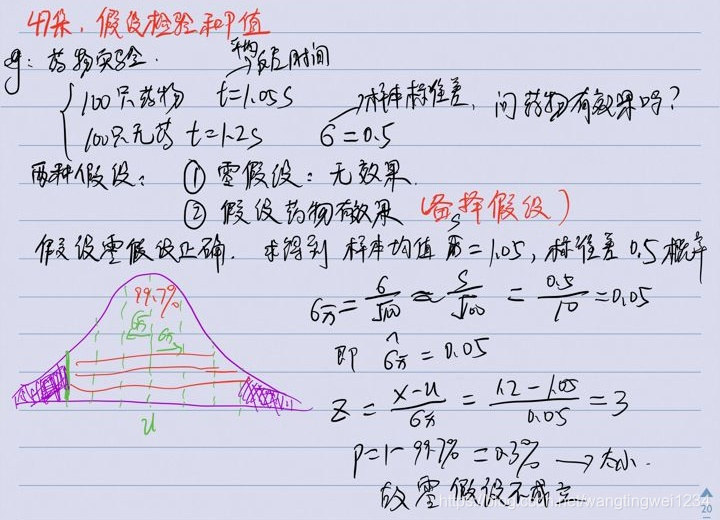 47集. 假设检验和P值
例: 药物实验.
平均反应时间
100只药物 t=1.05s
样本标准差, 问药物有效果吗?
100只无药 t=1.2s 6=0.5
两种假设: ① 零假设: 无效果.
② 假设药物有效果 (备择假设)
假设零假设正确. 求得到 样本均值 x̄=1.05, 标准差 0.5 概率
99.7%
6x̄ 6x̄
u
6x̄ = 6/√100 ≈ S/√100 = 0.5/10 = 0.05
即 6̂x̄ = 0.05
Z = x-u/6x̄ = 1.2-1.05/0.05 = 3
P=1-99.7% = 0.3% → 太小.
故零假设不成立
https://blog.csdn.net/wangtingwei1234
20